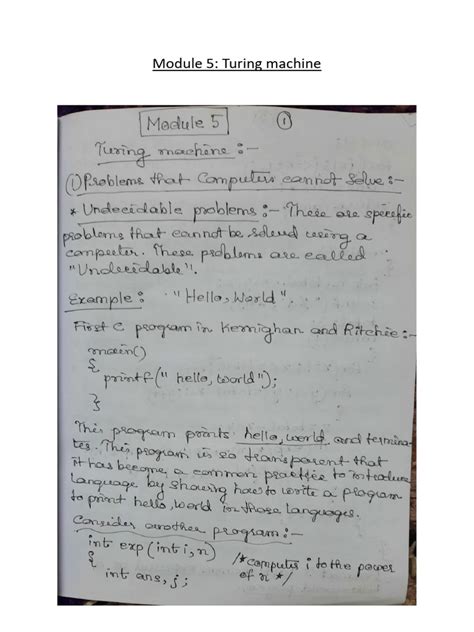 Module 5: Turing machine
Module 5
1
Turing machine :-
① Problems that Computers cannot Solve :-
* Undecidable problems :- There are specific
problems that cannot be solved using a
computer. These problems are called
"Undecidable".
Example : "Hello, World".
First C program in Kernighan and Ritchie :-
main()
{
printf(" hello, world");
}
This program prints hello, world, and termina-
tes. This program is so transparent that
it has become a common practice to introduce
language by showing how to write a program
to print hello, world in those languages.
Consider another program :-
int exp(int i, n)
{ /* computes i to the power
int ans, j; of n */